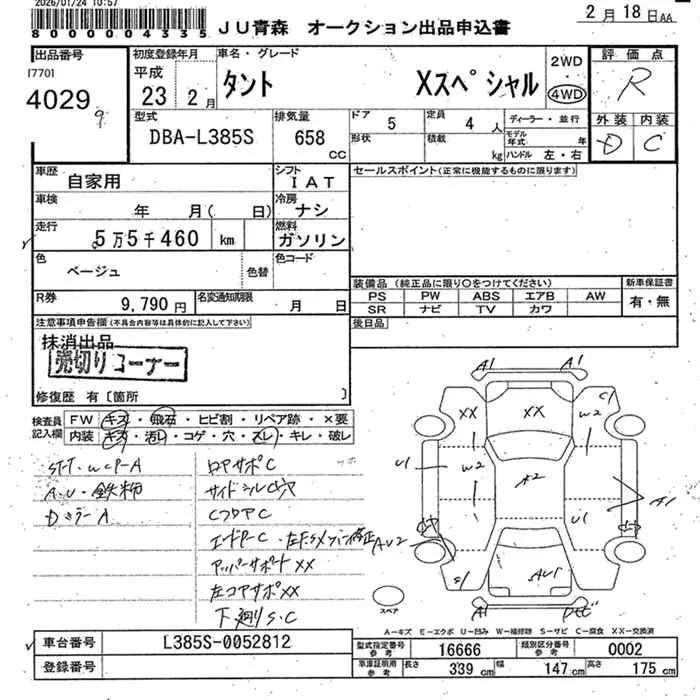 2026/01/24 10:57
8 0 0 0 0 0 4 3 3 5
JU青森 オークション出品申込書
2月18日AA
出品番号
17701
4029
9
初度登録年月
平成
23 2月
車名・グレード
タント Xスペシャル
2WD
・
4WD
評価点
R
外装 内装
D C
型式
DBA-L385S
排気量
658
CC
ドア
5
定員
4人
形状
積載
kg
ディーラー・並行
モデル年式 年
ハンドル 左・右
車歴
自家用
シフト
IAT
車検
年 月( 日)
冷房
ナシ
走行
5万5千460 km
燃料
ガソリン
色
ベージュ
色替
色コード
R券
9,790円
名変通知期限
月 日
セールスポイント(正常に機能するものに限ります)
装備品 (純正品に限り○をつけてください)
新車保証書
PS PW ABS エアB AW
有・無
SR ナビ TV カワ
後日品
注意事項申告欄(不具合内容等は具体的に記入して下さい)
抹消出品
売切りコーナー
修復歴 有〔箇所 〕
検査員記入欄
FW キズ・飛石・ヒビ割・リペア跡・×要
内装 キズ・汚レ・コゲ・穴・スレ・キレ・破レ
A・U・鉄粉
DミラーA
ロアサポC
サイドシルC穴
CフロアC
エンドP-C
アッパーサポートXX
左コアサポXX
下廻りS・C
A1 A1
XX XX C1
W2
U1 W2 A2 A1
U1
AU2
AU1
A1
スペア
A-キズ E-エクボ U-凹み W-補修跡 S-サビ C-腐食 XX-交換済
車台番号
L385S-0052812
登録番号
型式指定番号参考
16666
類別区分番号参考
0002
車庫証明用参考
長さ 339cm
幅 147cm
高さ 175cm